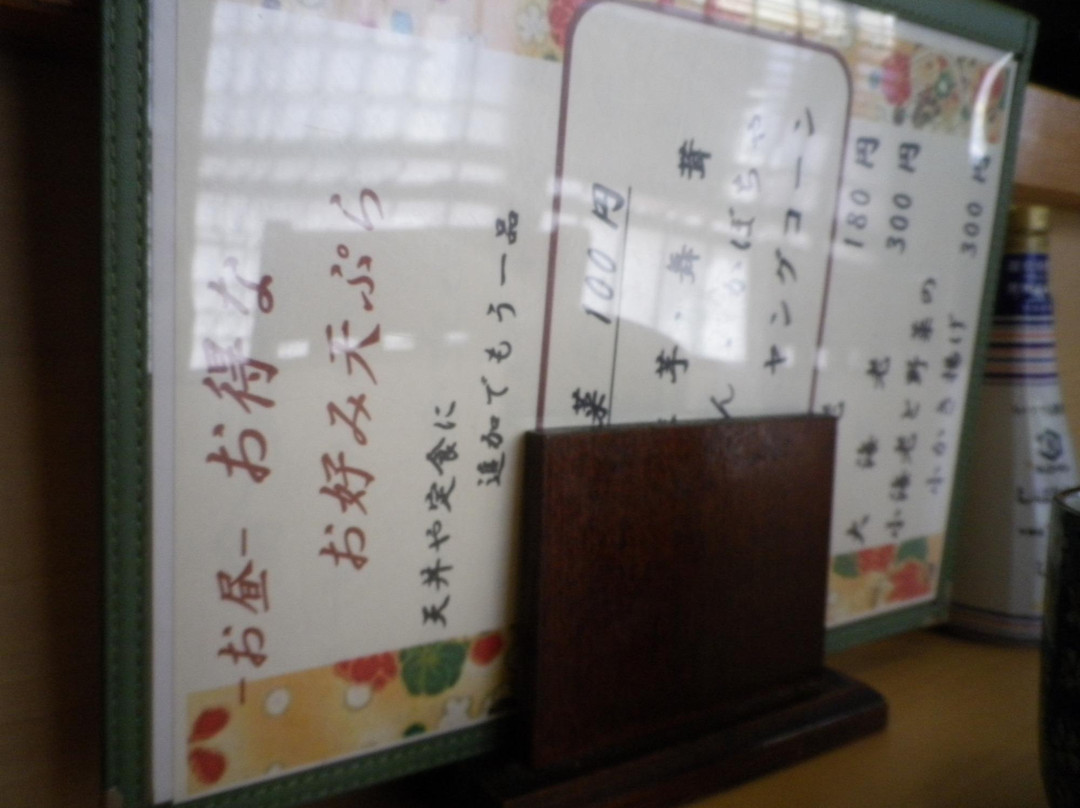 -お昼- お得な
お好み天ぷら
天丼や定食に
追加でもう一品
菜 100円
芋、舞茸
ん、かぼちゃ
ヤングコーン
大海老 180円
小海老と野菜の 300円
小かき揚げ 300円